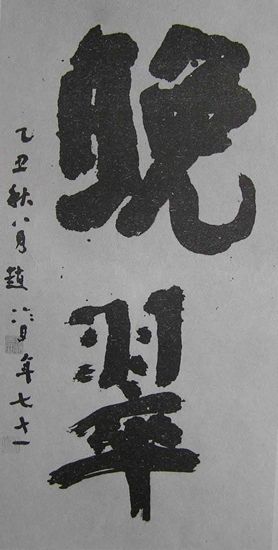 晚翠
乙丑秋八月趙冷月年七十一